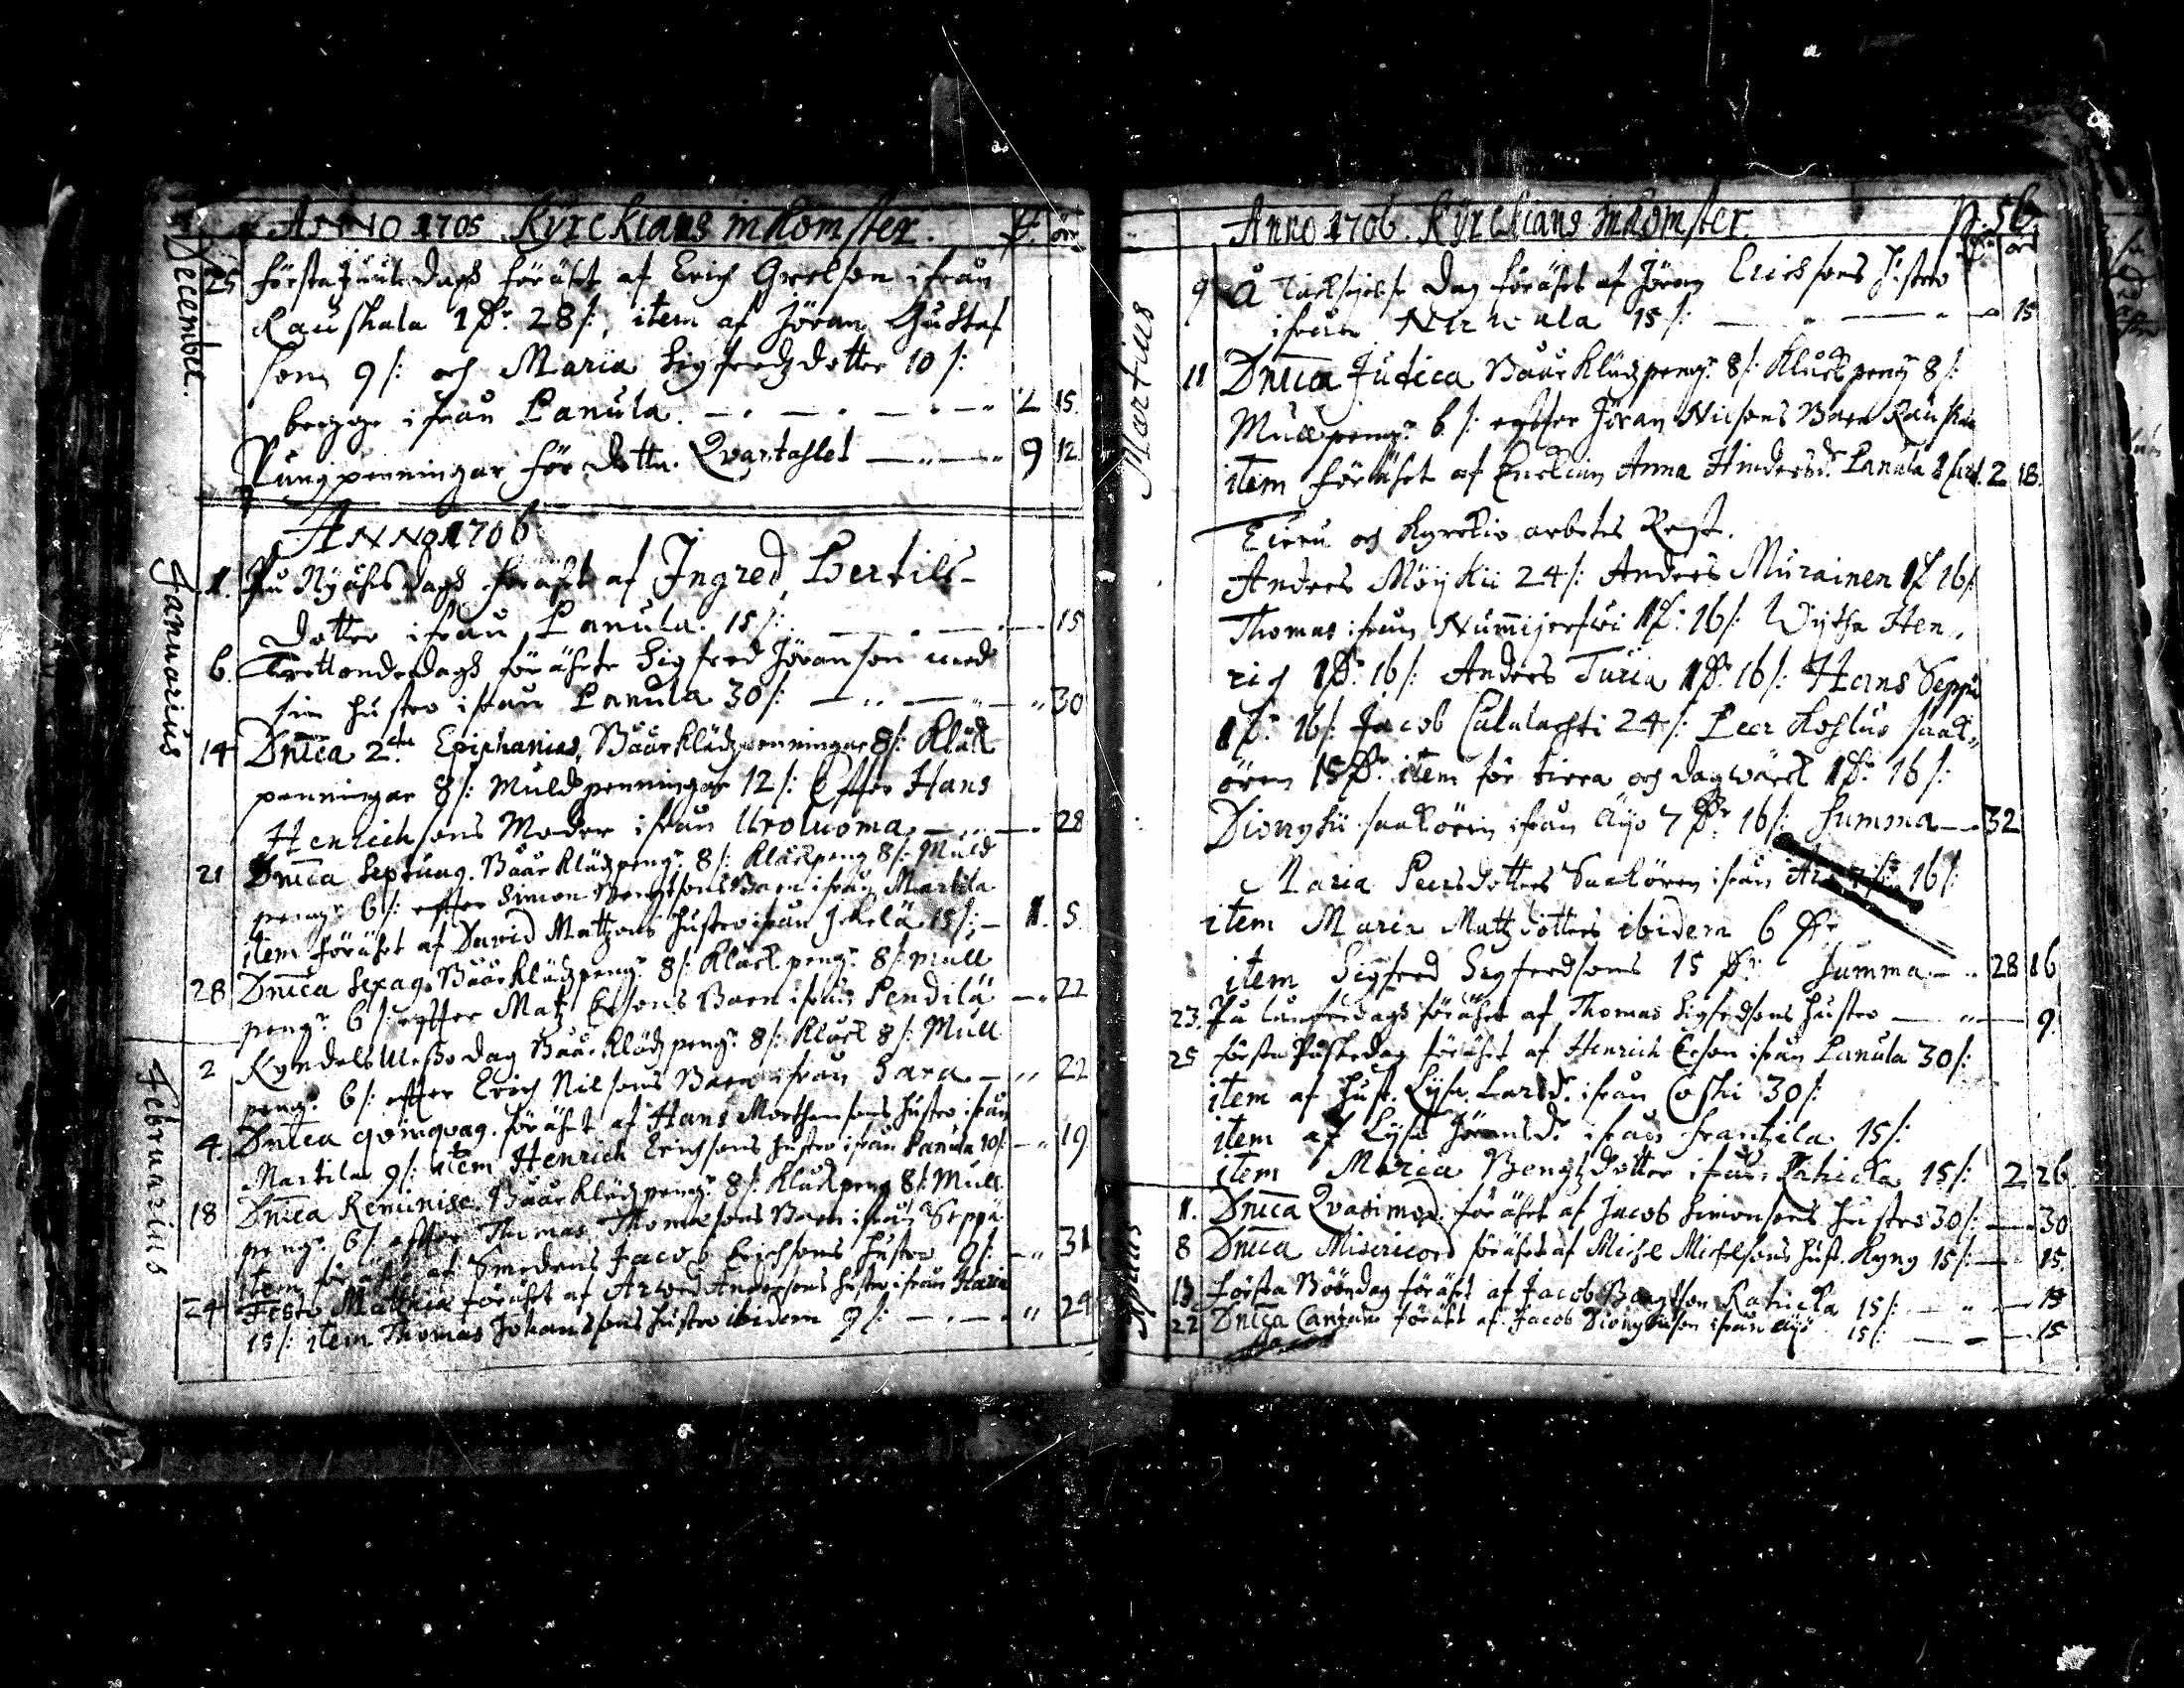 ANNO 1705 Kyrckians inkomster. P: öre
December.
25 första Juule dagh förährt af Erich Grelson ifrån
Rauskala 1 P: 28 /: item af Jöran Gustaf
son 9 /: och Maria Sigfredz dotter 10 /:
begge ifrån Lanula. 2 15.
Pungpenningar för detta Qvartahlet 9 12.
ANNO 1706
Januarius
1. På Nyåhrs dagh förährt af Ingred Bertils-
dotter ifrån Lanula. 15 /: 15
6. Trettonde dagh förährte Sigfred Jöranson med
sin hustro ifrån Lanula 30 /: 30
14 Dnica 2da Epiphanias, Båårklädzpenningar 8 /: Klåck
penningar 8 /: Muldpenningar 12 /: Effter Hans
Henrichsons Moder ifrån Uroluoma 28
21 Dnica Septuag. Båårklädzpeng: 8 /: Klåckpeng 8 /: Muld
peng: 6 /: effter Simon Bengtsons Barn ifrån Martila
item förährt af David Mattzons hustro ifrån Jckelä 15 /: 1. 5.
28 Dnica Sexag. Båårklädzpeng: 8 /: Klåck peng: 8 /: mull
peng: 6 /: effter Matz Ersons Barn ifrån Pendilä 22
Februarius
2 Kyndelsmesso dag Båårklädz peng: 8 /: Klåck 8 /: Mull
peng: 6 /: effter Erich Nilsons Barn ifrån Sara 22
4. Dnica qvinqvag. förährt af Hans Morthensons hustro ifrån
Martila 9 /: item Henrich Erichsons hustro ifrån Lanula 10 /: 19
18 Dnica Reminisc. Båårklädz peng: 8 /: Klåckpeng 8 /: Mull
peng: 6 /: effter Thomas Thomasons Barn ifrån Seppä
item förährt af Smedens Jacob Erichsons hustro 9 /: 31
24 Festo Matthiæ förährt af Arved Andersons hustro ifrån
15 /: item Thomas Johanssons hustro ibidem 9 /: 24
Anno 1706. Kyrckians Inkomster. p. 56
öre
Martius
9 Å Tacksäjelse dag förährt af Jöran Erichsons hustro
ifrån 15 /: 15
11 Dnica Judica Båårklädzpeng: 8 /: Klåckpeng 8 /:
Mullpeng: 6 /: effter Jöran Nilsons Barn
item förährt af Enckian Anna Hindersdr Lanula 2 18.
Tiäru och Kyrckio arbetes Rest.
Anders Möykii 24 /: Anders Murainen 1 P 16 /:
Thomas ifrån Nummijerfwi 1 P: 16 /: Hen-
rich 1 P: 16 /: Anders Turia 1 P: 16 /: Hans Seppä
1 P: 16 /: Jacob Calalachti 24 /: Peer saak-
ören 15 P: item för tiera och dagwärck 1 P: 16 /:
Dionysii saakören ifrån Äijö 7 P: 16 /: Summa 32
Maria Peersdotters Saakören ifrån 16 /:
item Maria Mattzdotters ibidem 6 P:
item Sigfred Sigfredsons 15 P: Summa 28 16
23. På Långfredagh förährt af Thomas Sigfredsons hustro 9.
25 första Påskedag förährt af Henrich Erson ifrån Lanula 30 /:
item af hust. Lysa Larsdr ifrån Coski 30 /:
item af Lysa Jöransdr ifrån Frantzila 15 /:
item Maria Bengtzdotter ifrån 15 /: 2 26.
Aprilis
1. Dnica Qvasimod. förährt af Jacob Simonsons hustro 30 /: 30
8 Dnica Misericord förährt af Michel Michelsons hust. Kyny 15 /: 15.
13 Första Bööndag förährt af Jacob Bengtson Rahicka 15 /: 15
22 Dnica Cantate förährt af Jacob Dionysiison ifrån Äijö 15 /: 15